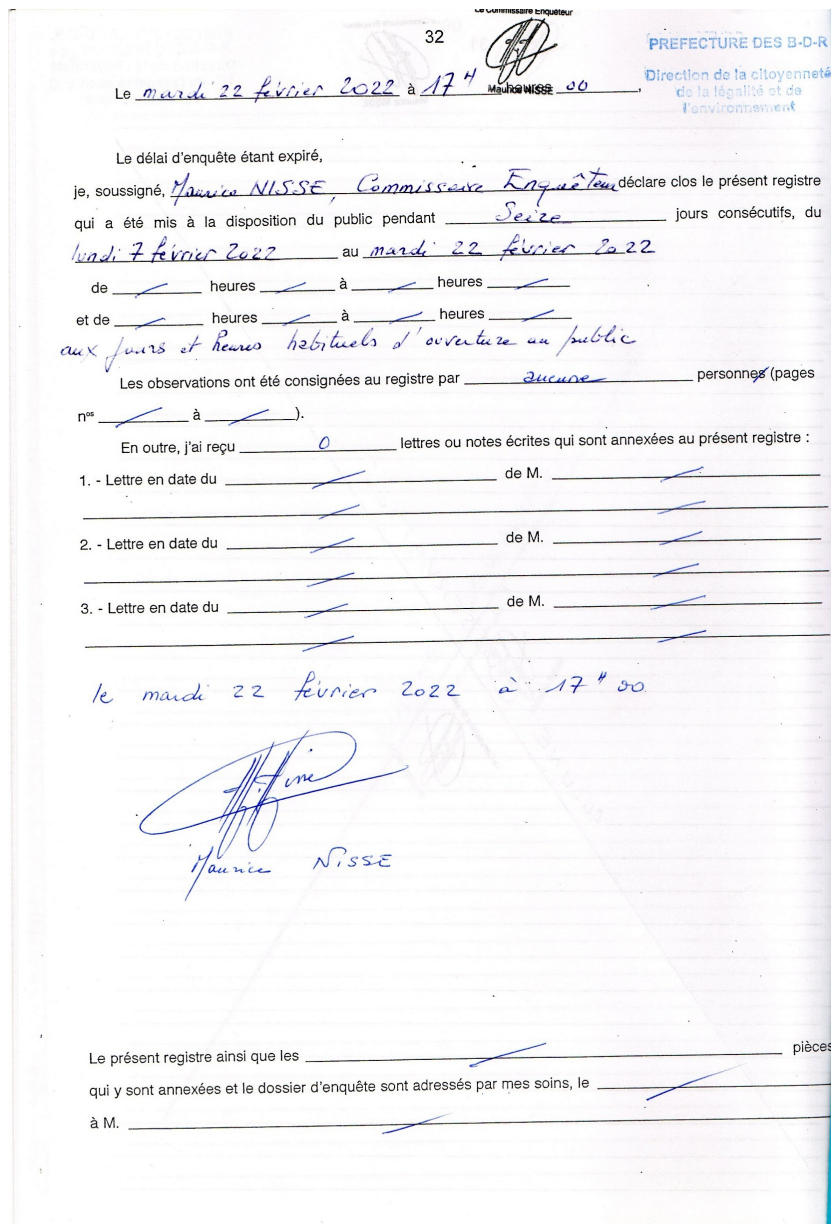 Le Commissaire Enquêteur
32
PREFECTURE DES B-D-R
Direction de la citoyenneté
de la légalité et de
l'environnement
Le mardi 22 février 2022 à 17 H heures 00,
Maurice NISSE
Le délai d'enquête étant expiré,
je, soussigné, Maurice NISSE, Commissaire Enquêteur déclare clos le présent registre
qui a été mis à la disposition du public pendant Seize jours consécutifs, du
lundi 7 février 2022 au mardi 22 février 2022
de heures à heures
et de heures à heures
aux jours et heures habituels d'ouverture au public
Les observations ont été consignées au registre par aucune personnes (pages
nos à ).
En outre, j'ai reçu 0 lettres ou notes écrites qui sont annexées au présent registre :
1. - Lettre en date du de M.
2. - Lettre en date du de M.
3. - Lettre en date du de M.
le mardi 22 février 2022 à 17 H 00
Maurice NISSE
Le présent registre ainsi que les pièces
qui y sont annexées et le dossier d'enquête sont adressés par mes soins, le
à M.